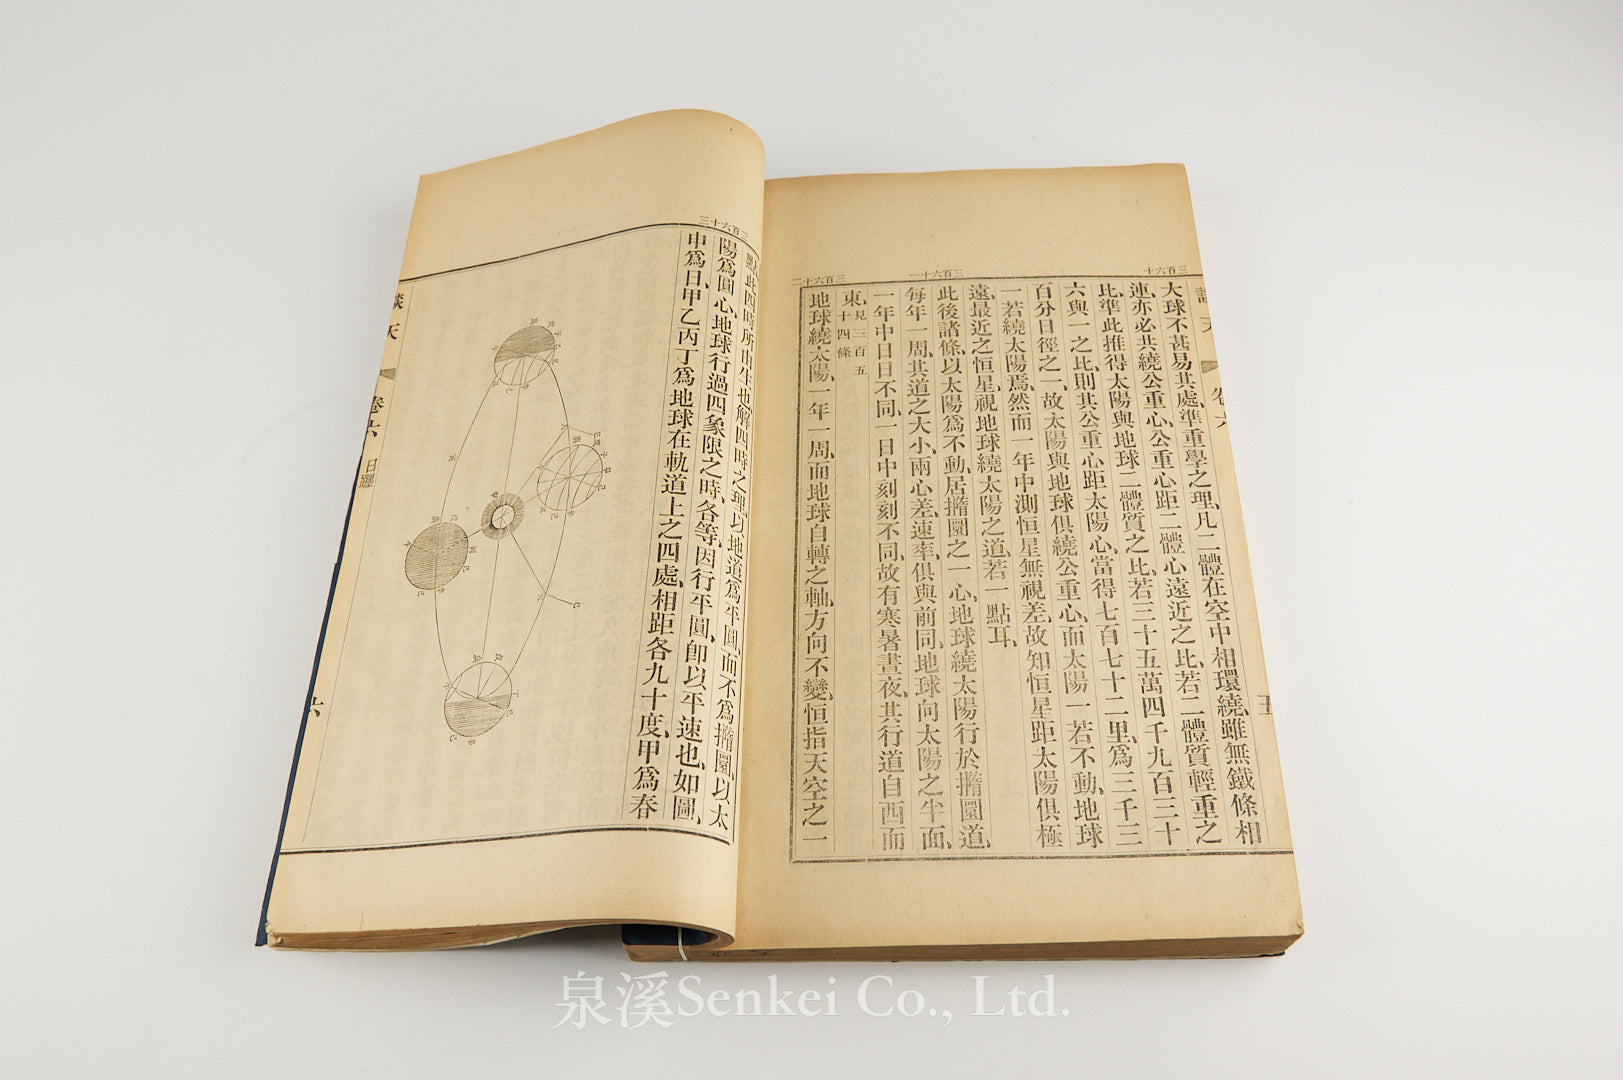 三百六十
三百六十一
三百六十二
談天
卷六
五
大球不甚易其處準重學之理凡二體在空中相環繞雖無鐵條相
連亦必共繞公重心公重心距二體心遠近之比若二體質輕重之
比準此推得太陽與地球二體質之比若三十五萬四千九百三十
六與一之比則其公重心距太陽心當得七百七十二里為三千三
百分日徑之一故太陽與地球俱繞公重心而太陽一若不動地球
一若繞太陽焉然而一年中測恒星無視差故知恒星距太陽俱極
遠最近之恒星視地球繞太陽之道若一點耳
此後諸條以太陽爲不動居撱圜之一心地球繞太陽行於撱圜道
每年一周其道之大小兩心差速率俱與前同地球向太陽之半面
一年中日日不同一日中刻刻不同故有寒暑晝夜其行道自西而
東見三百五十四條
地球繞太陽一年一周而地球自轉之軸方向不變恒指天空之一
三百六十三
點此四時所由生也解四時之理以地道爲平圜而不爲撱圜以太
陽爲圜心地球行過四象限之時各等因行平圜卽以平速也如圖
申爲日甲乙丙丁爲地球在軌道上之四處相距各九十度甲爲春
談天
卷六
日躔
六
泉溪Senkei Co., Ltd.